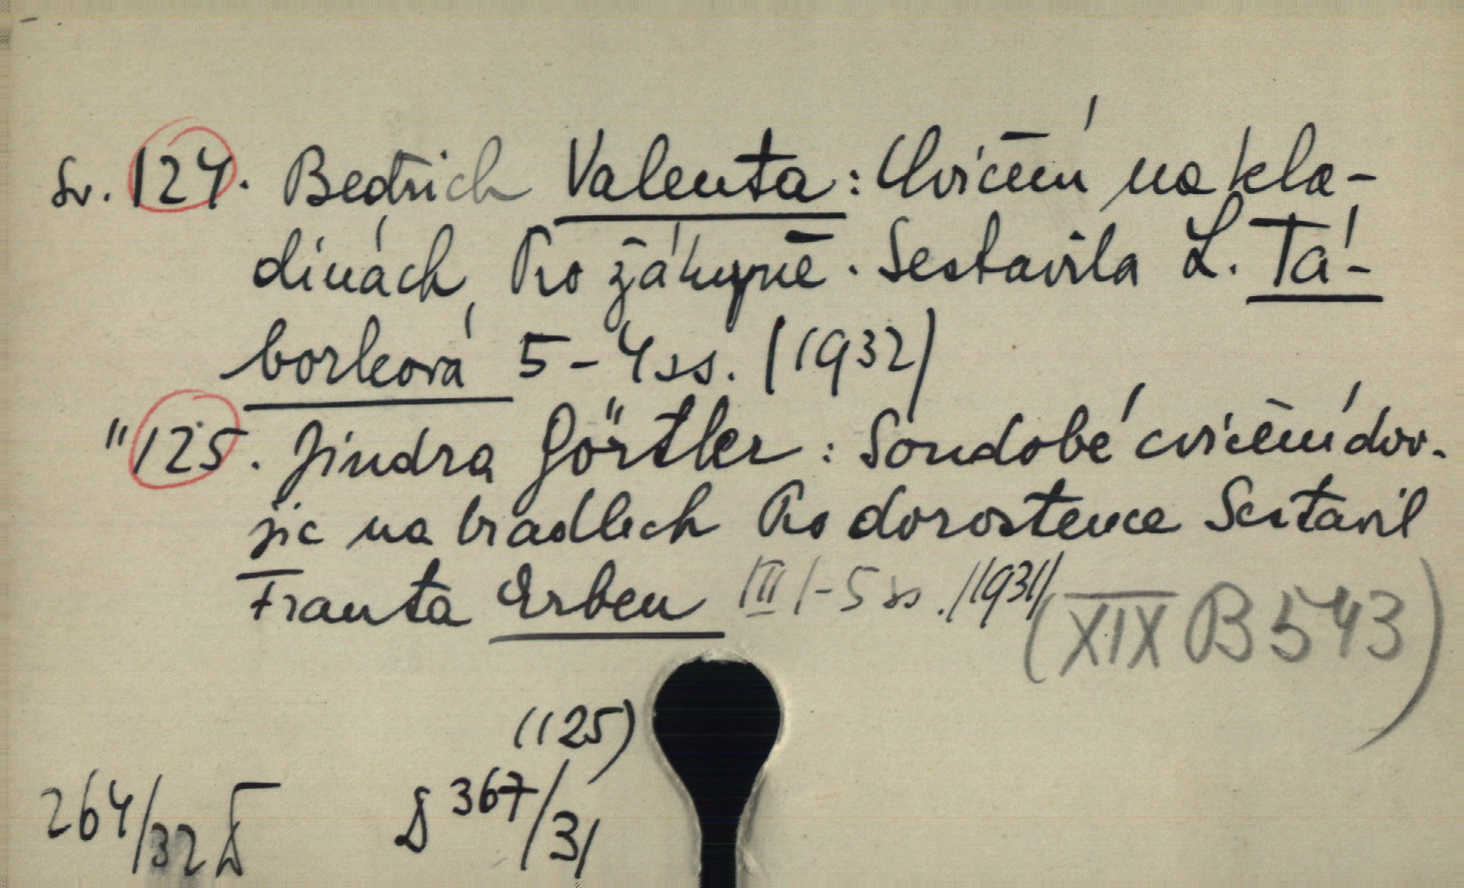 Sv. 124. Bedřich Valenta: Cvičení na kla-
dinách. Pro žákyně. Sestavila L. Tá-
borková 5-4 ss. (1932)
" 125. Jindra Görtler: Soudobé cvičení dvo-
jic na bradlech Pro dorostence Sestavil
Franta Erben III/-5 ss. /1931/
(XIX B 543)
(125)
264/32 D 367/31